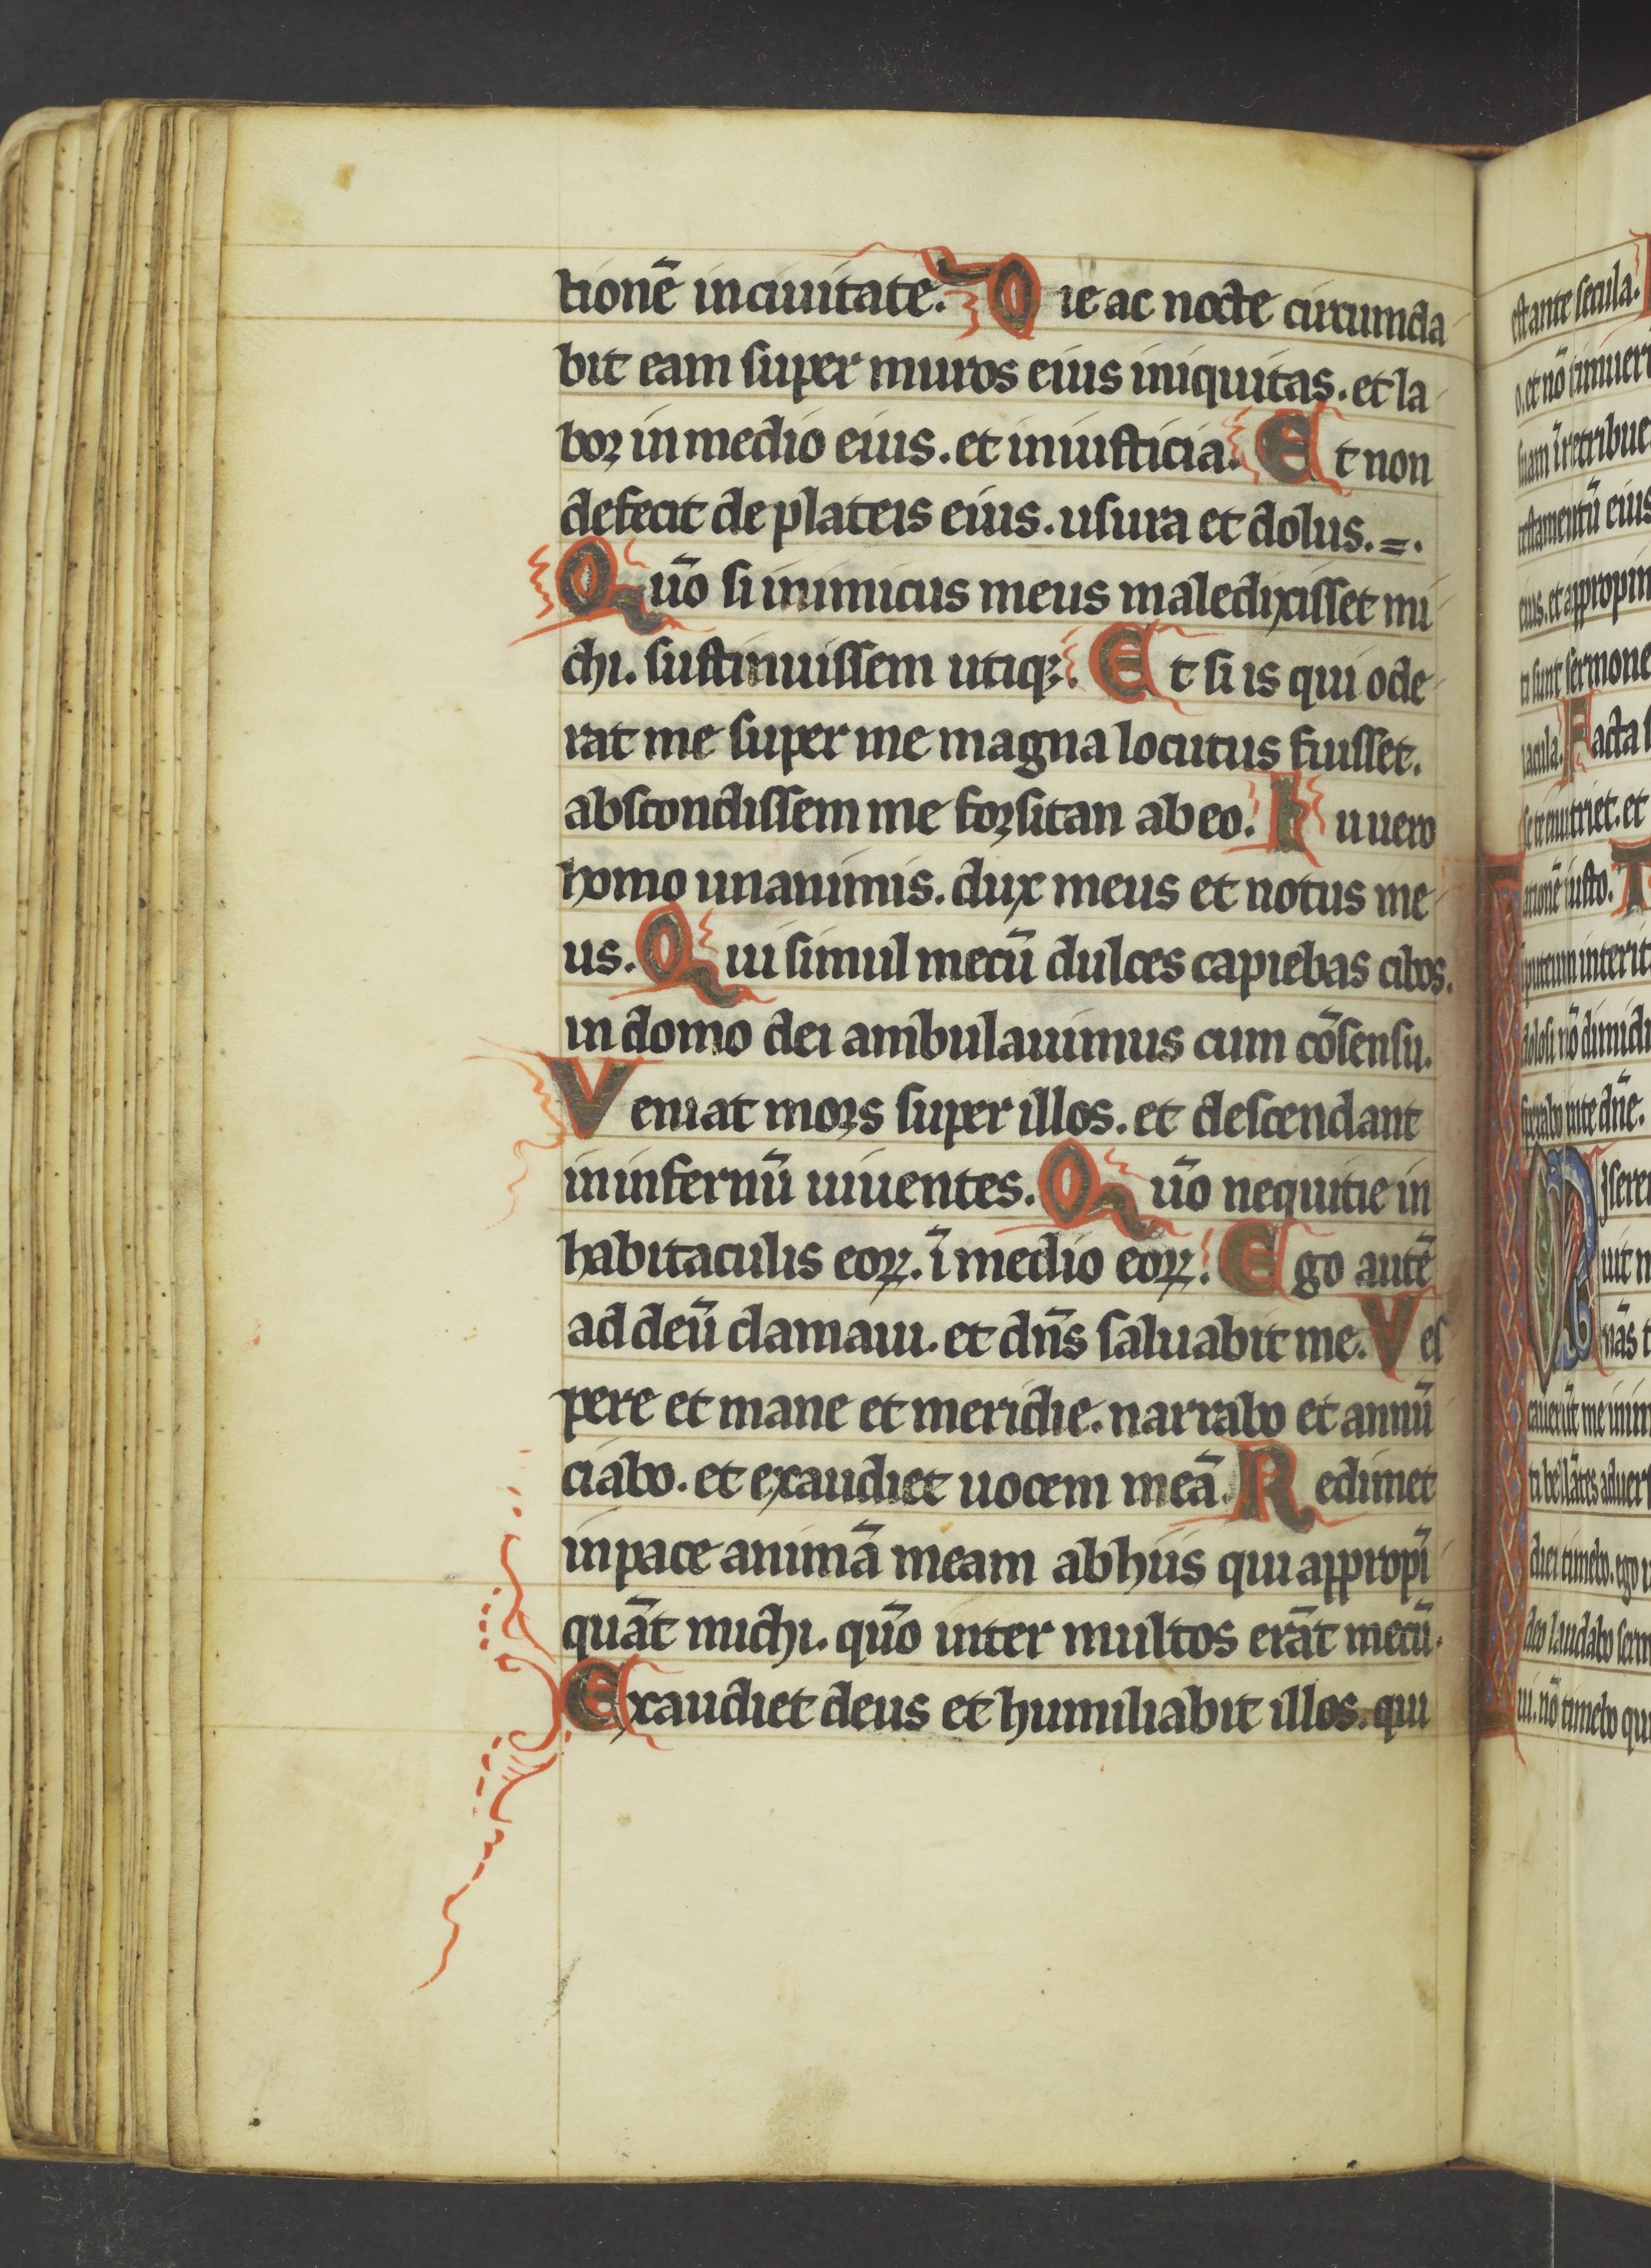 tionē in ciuitate. Die ac nocte circumda
bit eam super muros eius iniquitas. et la
bor in medio eius. et iniusticia. Et non
defecit de plateis eius. usura et dolus. =.
Qūo si inimicus meus maledixisset mi
chi. sustinuissem utiqꝫ. Et si is qui ode
rat me super me magna locutus fuisset.
abscondissem me forsitan ab eo. Tu uero
homo unanimis. dux meus et notus me
us. Qui simul mecū dulces capiebas cibos.
in domo dei ambulauimus cum cōsensu.
Veniat mors super illos. et descendant
in infernū uiuentes. Qūo nequitie in
habitaculis eoꝝ. ī medio eoꝝ. Ego autē
ad deū clamaui. et dn̄s saluabit me. Ves
pere et mane et meridie. narrabo et annū
ciabo. et exaudiet uocem meā. Redimet
in pace animā meam ab hiis qui appropī
quāt michi. qūo inter multos erāt mecū.
Exaudiet deus et humiliabit illos. qui
est ante secula.
o. et nō timuer
suam ī retribue
testamentū eius
eius. et appropin
ti sunt sermone
iacula. Iacta s
se te enutriet. et
ationē iusto. T
puteum interit
dolosi nō dimidi
sperabo in te dn̄e.
Misere
uit m
nās t
cauerūt me inim
ti bellātes aduers
diei timebo. ego u
deo laudabo serm
ui. nō timebo qui